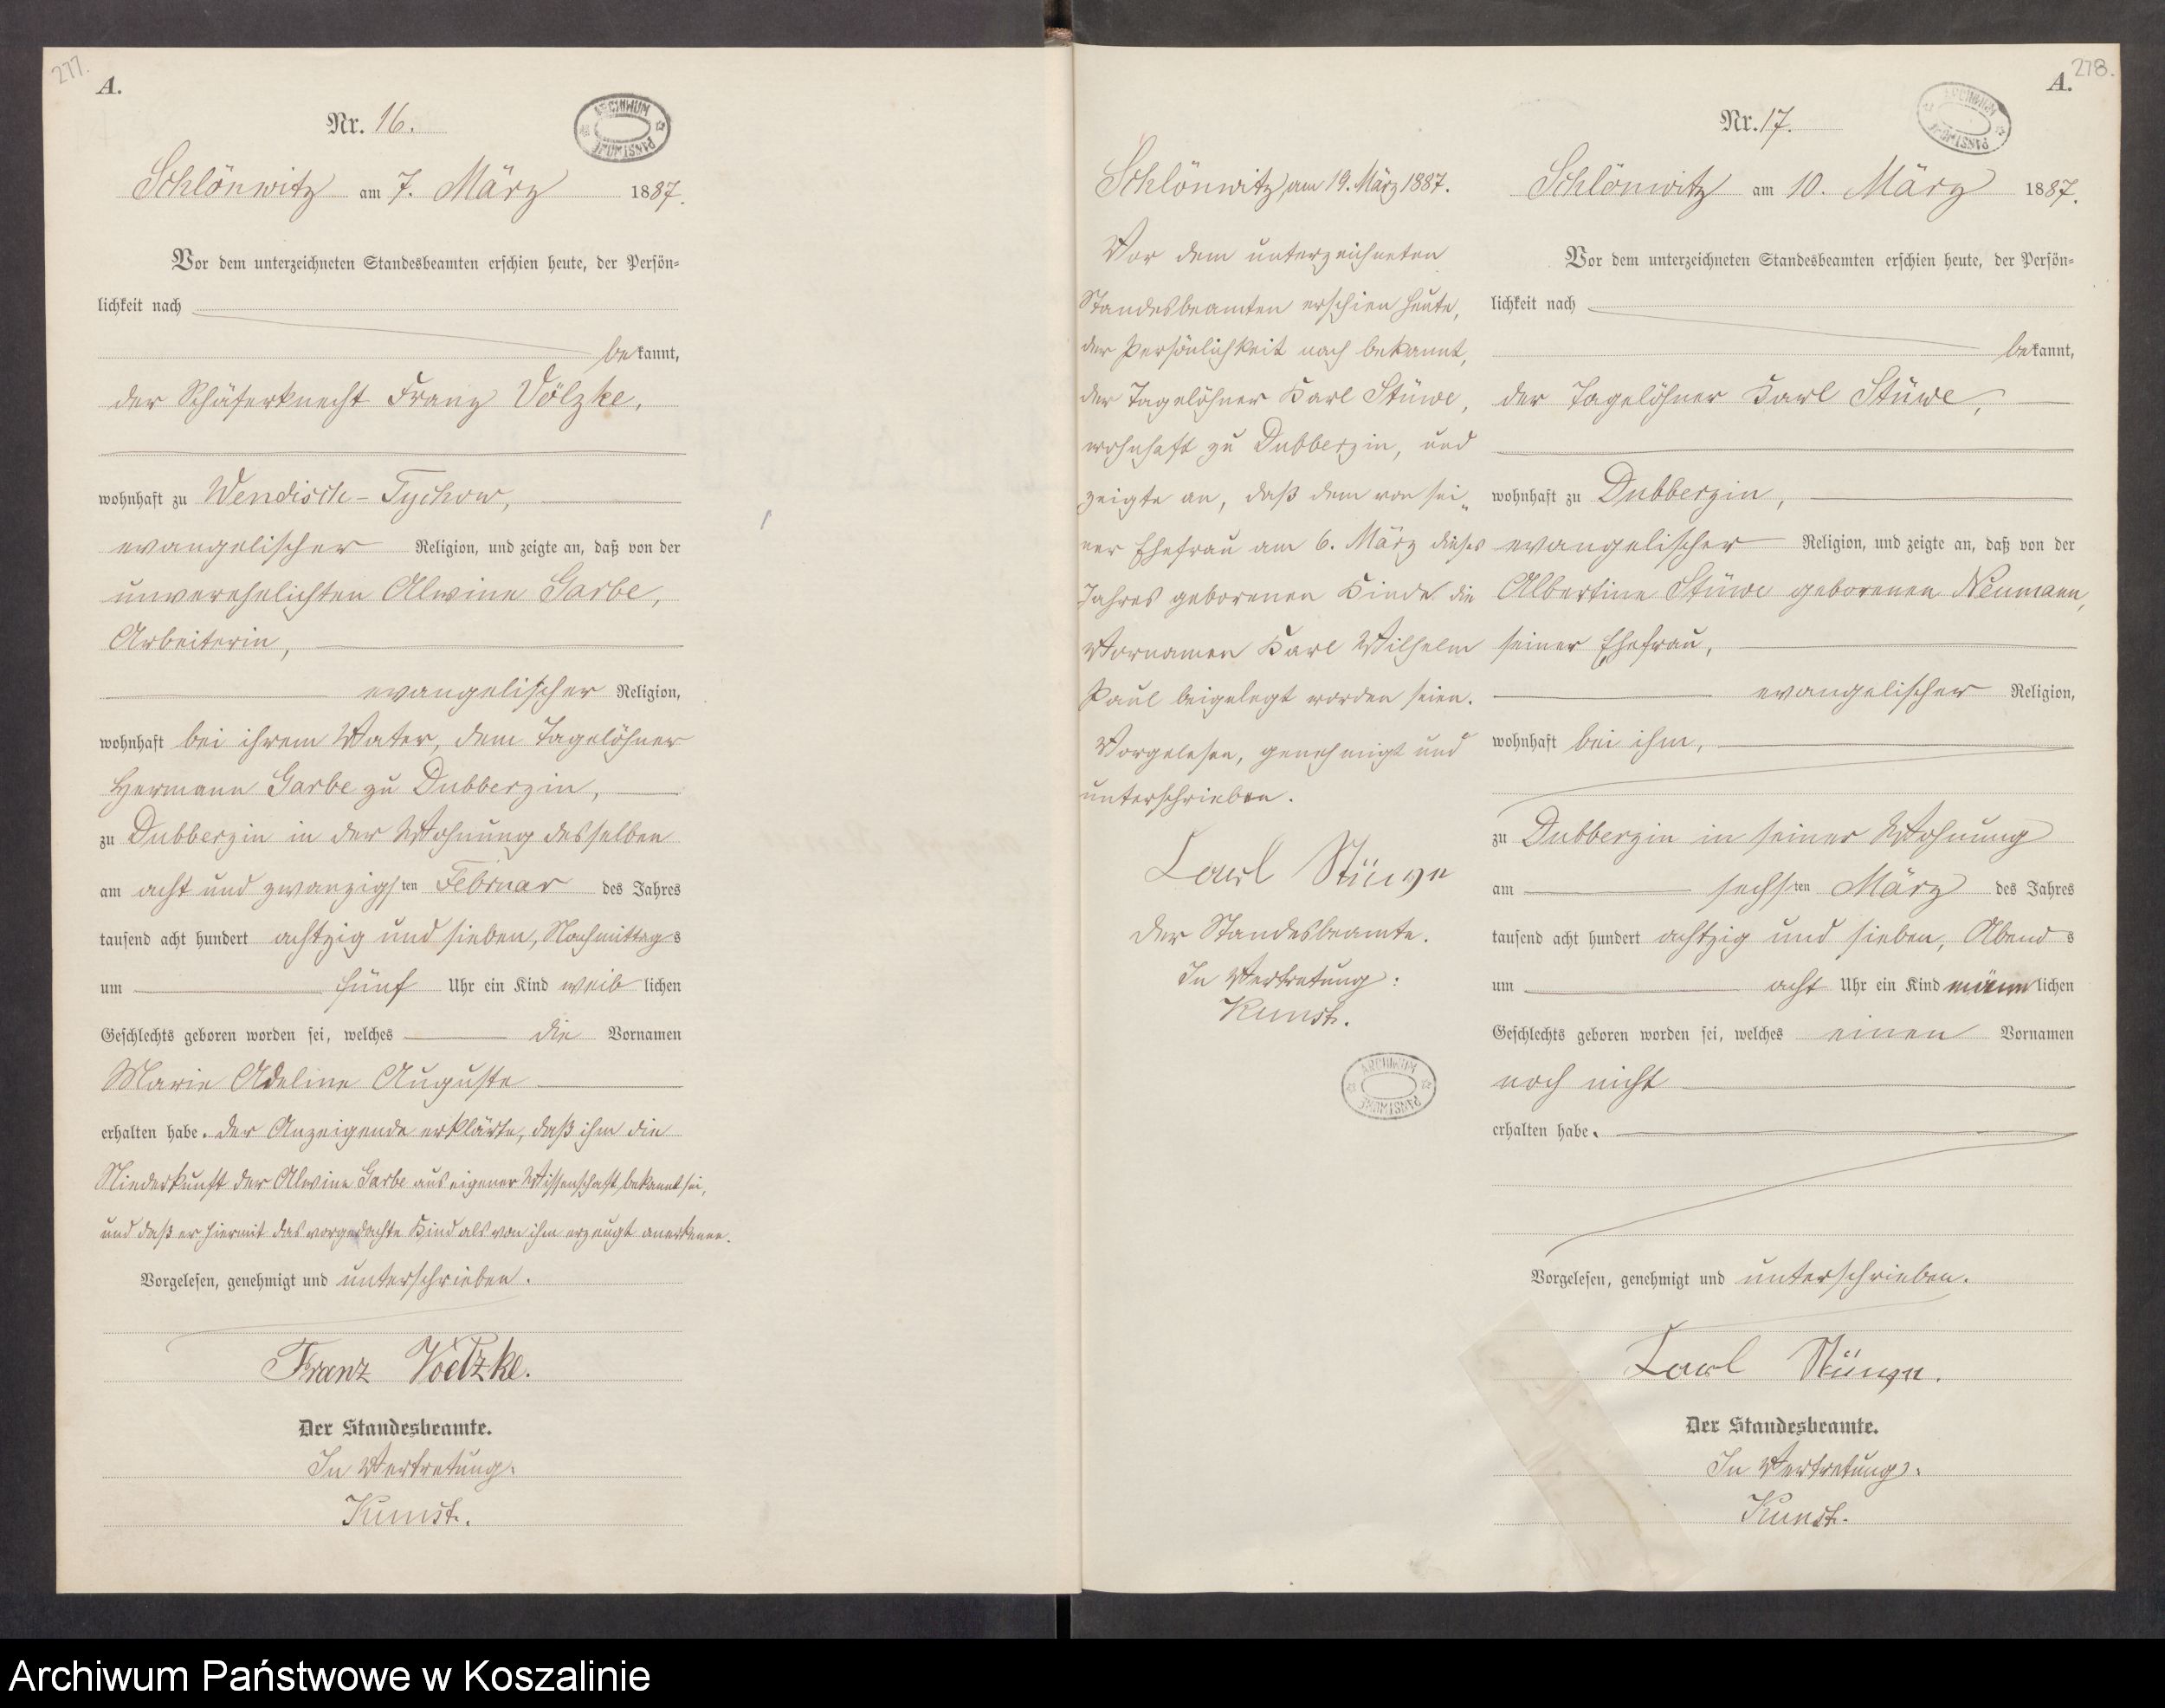 277.
A.
Nr. 16.
ARCHIWUM PAŃSTWOWE
Schlönwitz am 7. März 1887.
Vor dem unterzeichneten Standesbeamten erschien heute, der Persön=
lichkeit nach
bekannt,
der Schäferknecht Franz Völzke,
wohnhaft zu Wendisch-Tychow,
evangelischer Religion, und zeigte an, daß von der
unverehelichten Alwine Garbe,
Arbeiterin,
evangelischer Religion,
wohnhaft bei ihrem Vater, dem Tagelöhner
Hermann Garbe zu Dubberzin,
zu Dubberzin in der Wohnung desselben
am acht und zwanzigsten Februar des Jahres
tausend acht hundert achtzig und sieben, Nachmittags
um fünf Uhr ein Kind weiblichen
Geschlechts geboren worden sei, welches die Vornamen
Marie Adeline Auguste
erhalten habe. Der Anzeigende erklärte, daß ihm die
Niederkunft der Alwine Garbe aus eigener Wissenschaft bekannt sei,
und daß er hiermit das vorgedachte Kind als von ihm erzeugt anerkenne.
Vorgelesen, genehmigt und unterschrieben.
Franz Voelzke.
Der Standesbeamte.
In Vertretung:
Kunst.
Schlönwitz, am 19. März 1887.
Vor dem unterzeichneten
Standesbeamten erschien heute,
der Persönlichkeit nach bekannt,
der Tagelöhner Karl Stüwe,
wohnhaft zu Dubberzin, und
zeigte an, daß dem von sei„
ner Ehefrau am 6. März dieses
Jahres geborenen Kinde die
Vornamen Karl Wilhelm
Paul beigelegt worden seien.
Vorgelesen, genehmigt und
unterschrieben.
Carl Stüwe
Der Standesbeamte.
In Vertretung:
Kunst.
ARCHIWUM PAŃSTWOWE
278.
A.
Nr. 17.
ARCHIWUM PAŃSTWOWE
Schlönwitz am 10. März 1887.
Vor dem unterzeichneten Standesbeamten erschien heute, der Persön=
lichkeit nach
bekannt,
der Tagelöhner Karl Stüwe,
wohnhaft zu Dubberzin,
evangelischer Religion, und zeigte an, daß von der
Albertine Stüwe geborenen Neumann,
seiner Ehefrau,
evangelischer Religion,
wohnhaft bei ihm,
zu Dubberzin in seiner Wohnung
am sechsten März des Jahres
tausend acht hundert achtzig und sieben, Abends
um acht Uhr ein Kind männlichen
Geschlechts geboren worden sei, welches einen Vornamen
noch nicht
erhalten habe.
Vorgelesen, genehmigt und unterschrieben.
Carl Stüwe.
Der Standesbeamte.
In Vertretung:
Kunst.
Archiwum Państwowe w Koszalinie